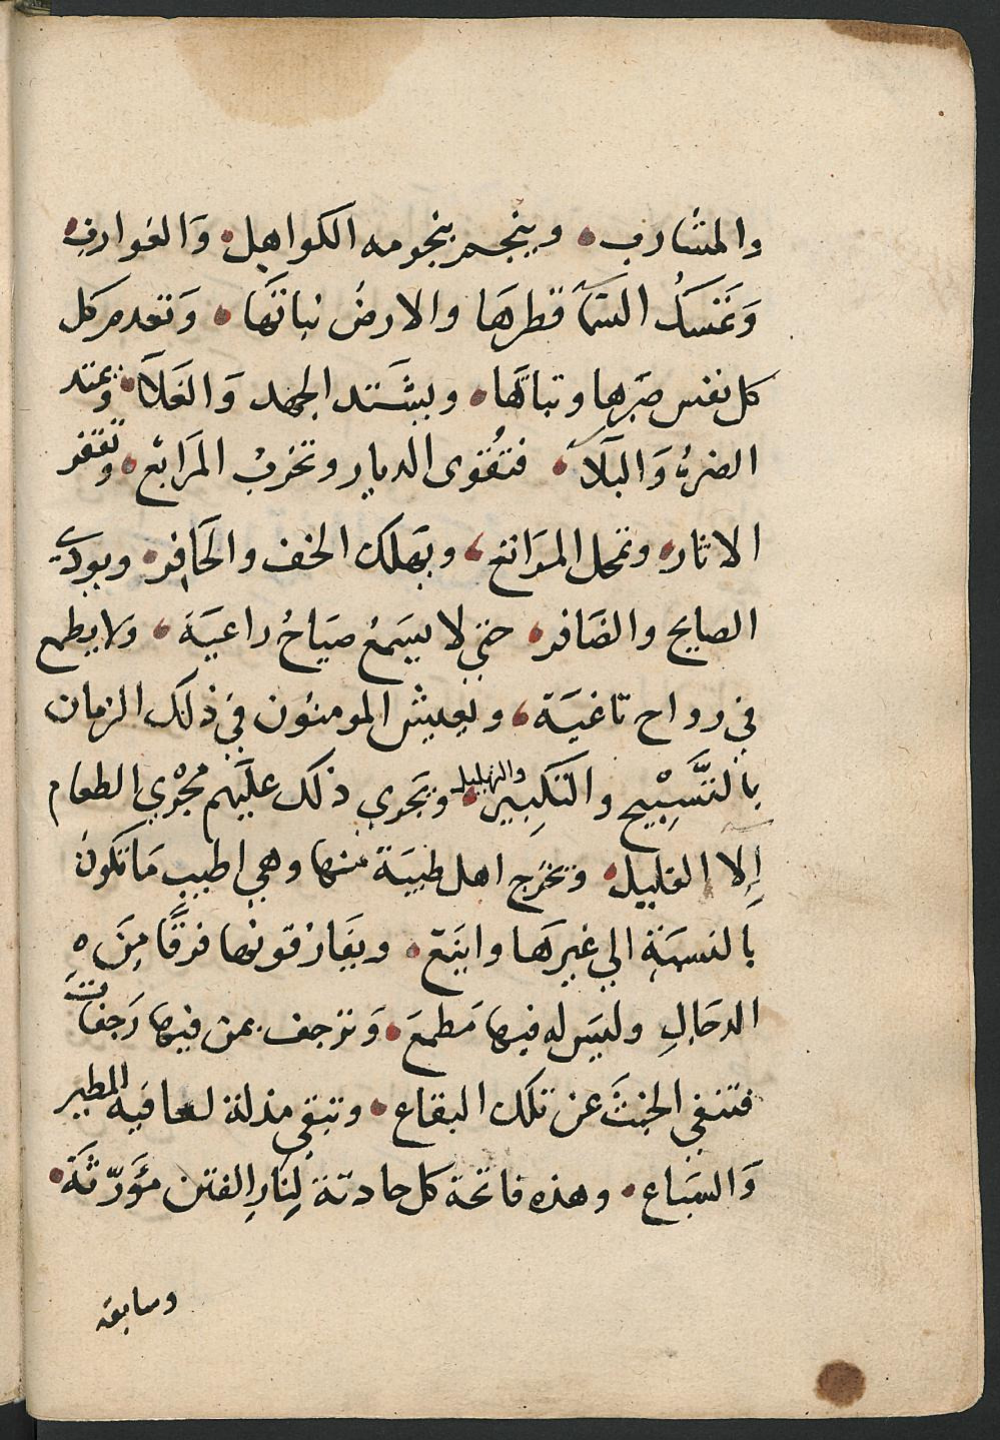 والمشارب وينجم بنجومه الكواهل وَالغوارب
وَتمسكُ السّمآ قطرهَا والارضُ نباتَها وَتعدم كل
كل نفس صَبرها وتباتَها ويشَتد الجهد وَالغَلآ ويمتد
الضرُ وَالبَلآ فتُقوى الديار وتخربُ المرَابع وتقفر
الاثار وتمحل المرَاتع ويَهلك الخف والحَافِر ويودي
الصايح والصَافر حتي لا يسَمعُ صيَاحُ راعيَة ولا يطمع
في رواح تاغيَة ويَعيش المومنُون في ذلَك الزمان
بالتَّسِبْيح والتكبِير والتهليل ويَجري ذلك عليَهم مجْرَي الطعام
إلا القليل وَتخرَج اهل طيبَة منها وهي اطيب مَا تكونُ
بالنسبَة الي غيرهَا واينَع ويفَارقونها فرقًا مِنَ ه
الدجَالِ وليَس له فيها مَطمعَ وَترجف بمن فيها رَجفاتَ
فتنفي الخبثَ عن تلك البقاع وتبقي مذللة لعافيه الطير
وَالسَباع وهذه فاتحة كل حادثة لِنارِ الفتن مؤَرّثَة
وسابقة